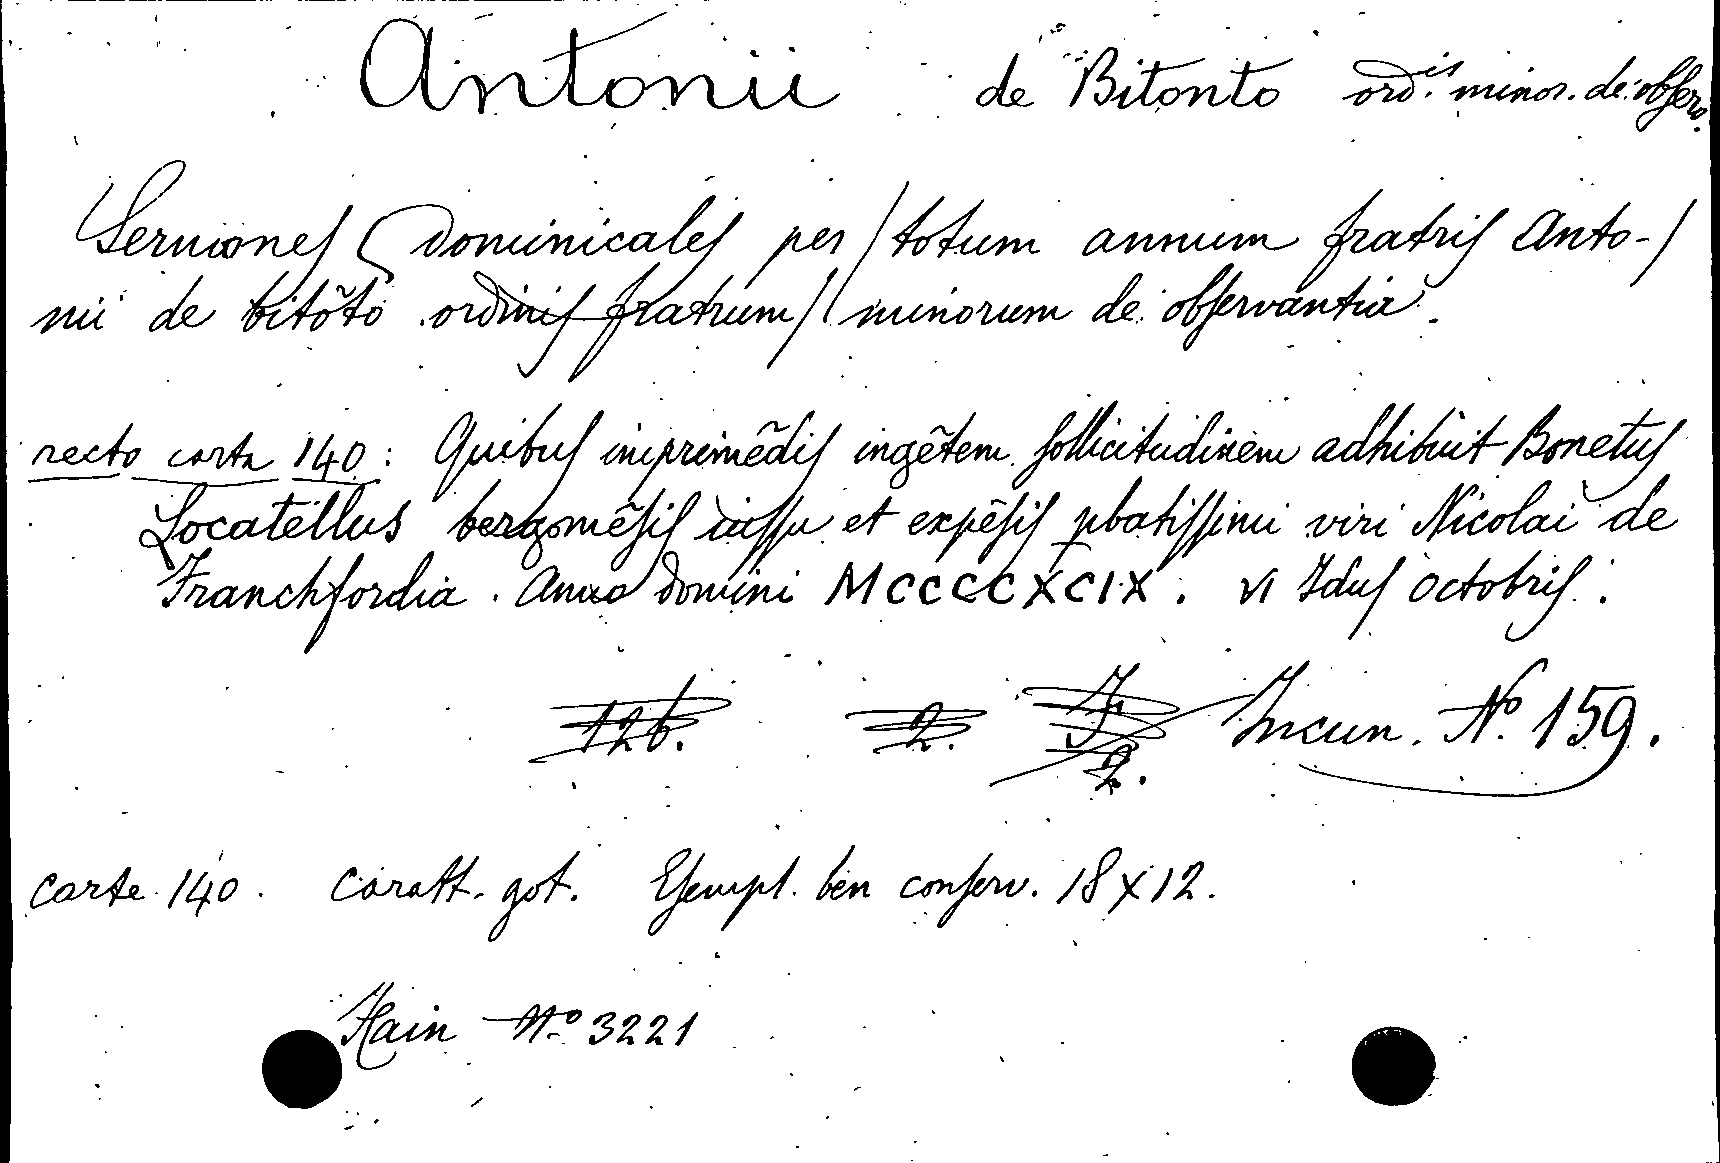 Antonii de Bitonto ord.is minor. de observ.
Sermones dominicales per / totum annum fratris Anto- /
nii de bitõto ordinis fratrum / minorum de observantia.
recto carta 140: Quibus imprimẽdis ingẽtem sollicitudinem adhibuit Bonetus
Locatellus bergomẽsis iussu et expẽsis pbatissimi viri Nicolai de
Franchfordia. Anno domini MCCCCXCIX. VI Idus Octobris.
12b. 2. 2. Incun. No. 159.
carte 140. caratt. got. Esempl. ben conserv. 18 x 12.
Hain No 3221